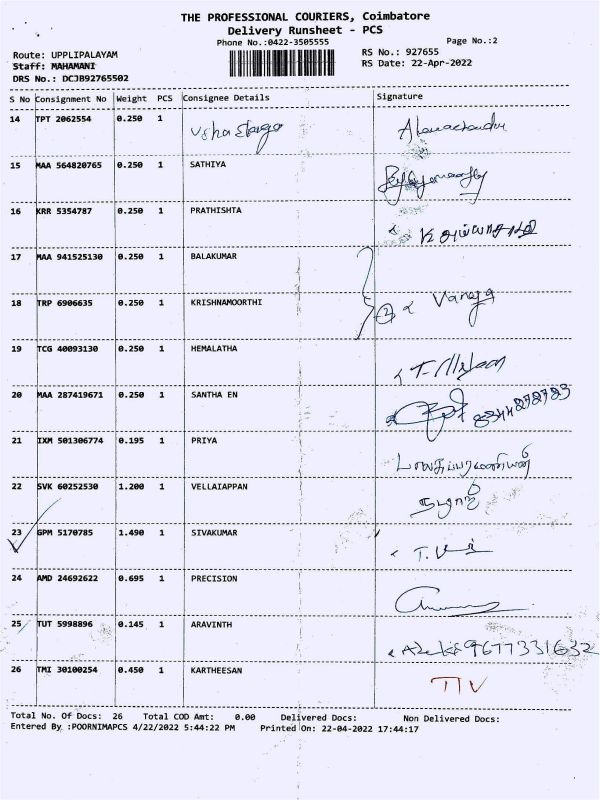 THE PROFESSIONAL COURIERS, Coimbatore
Delivery Runsheet - PCS
Phone No.:0422-3505555
Page No.:2
Route: UPPLIPALAYAM
RS No.: 927655
Staff: MAHAMANI
RS Date: 22-Apr-2022
DRS No.: DCJB92765502
S No Consignment No Weight PCS Consignee Details Signature
14 TPT 2062554 0.250 1 Usha
15 MAA 564820765 0.250 1 SATHIYA
16 KRR 5354787 0.250 1 PRATHISHTA
17 MAA 941525130 0.250 1 BALAKUMAR
18 TRP 6906635 0.250 1 KRISHNAMOORTHI Vanaja
19 TCG 40093130 0.250 1 HEMALATHA
20 MAA 287419671 0.250 1 SANTHA EN
21 IXM 501306774 0.195 1 PRIYA பாலசுப்பரமணியன்
22 SVK 60252530 1.200 1 VELLAIAPPAN
23 GPM 5170785 1.490 1 SIVAKUMAR
24 AMD 24692622 0.695 1 PRECISION
25 TUT 5998896 0.145 1 ARAVINTH 9677331632
26 TMI 30100254 0.450 1 KARTHEESAN
Total No. Of Docs: 26 Total COD Amt: 0.00 Delivered Docs: Non Delivered Docs:
Entered By :POORNIMAPCS 4/22/2022 5:44:22 PM Printed On: 22-04-2022 17:44:17